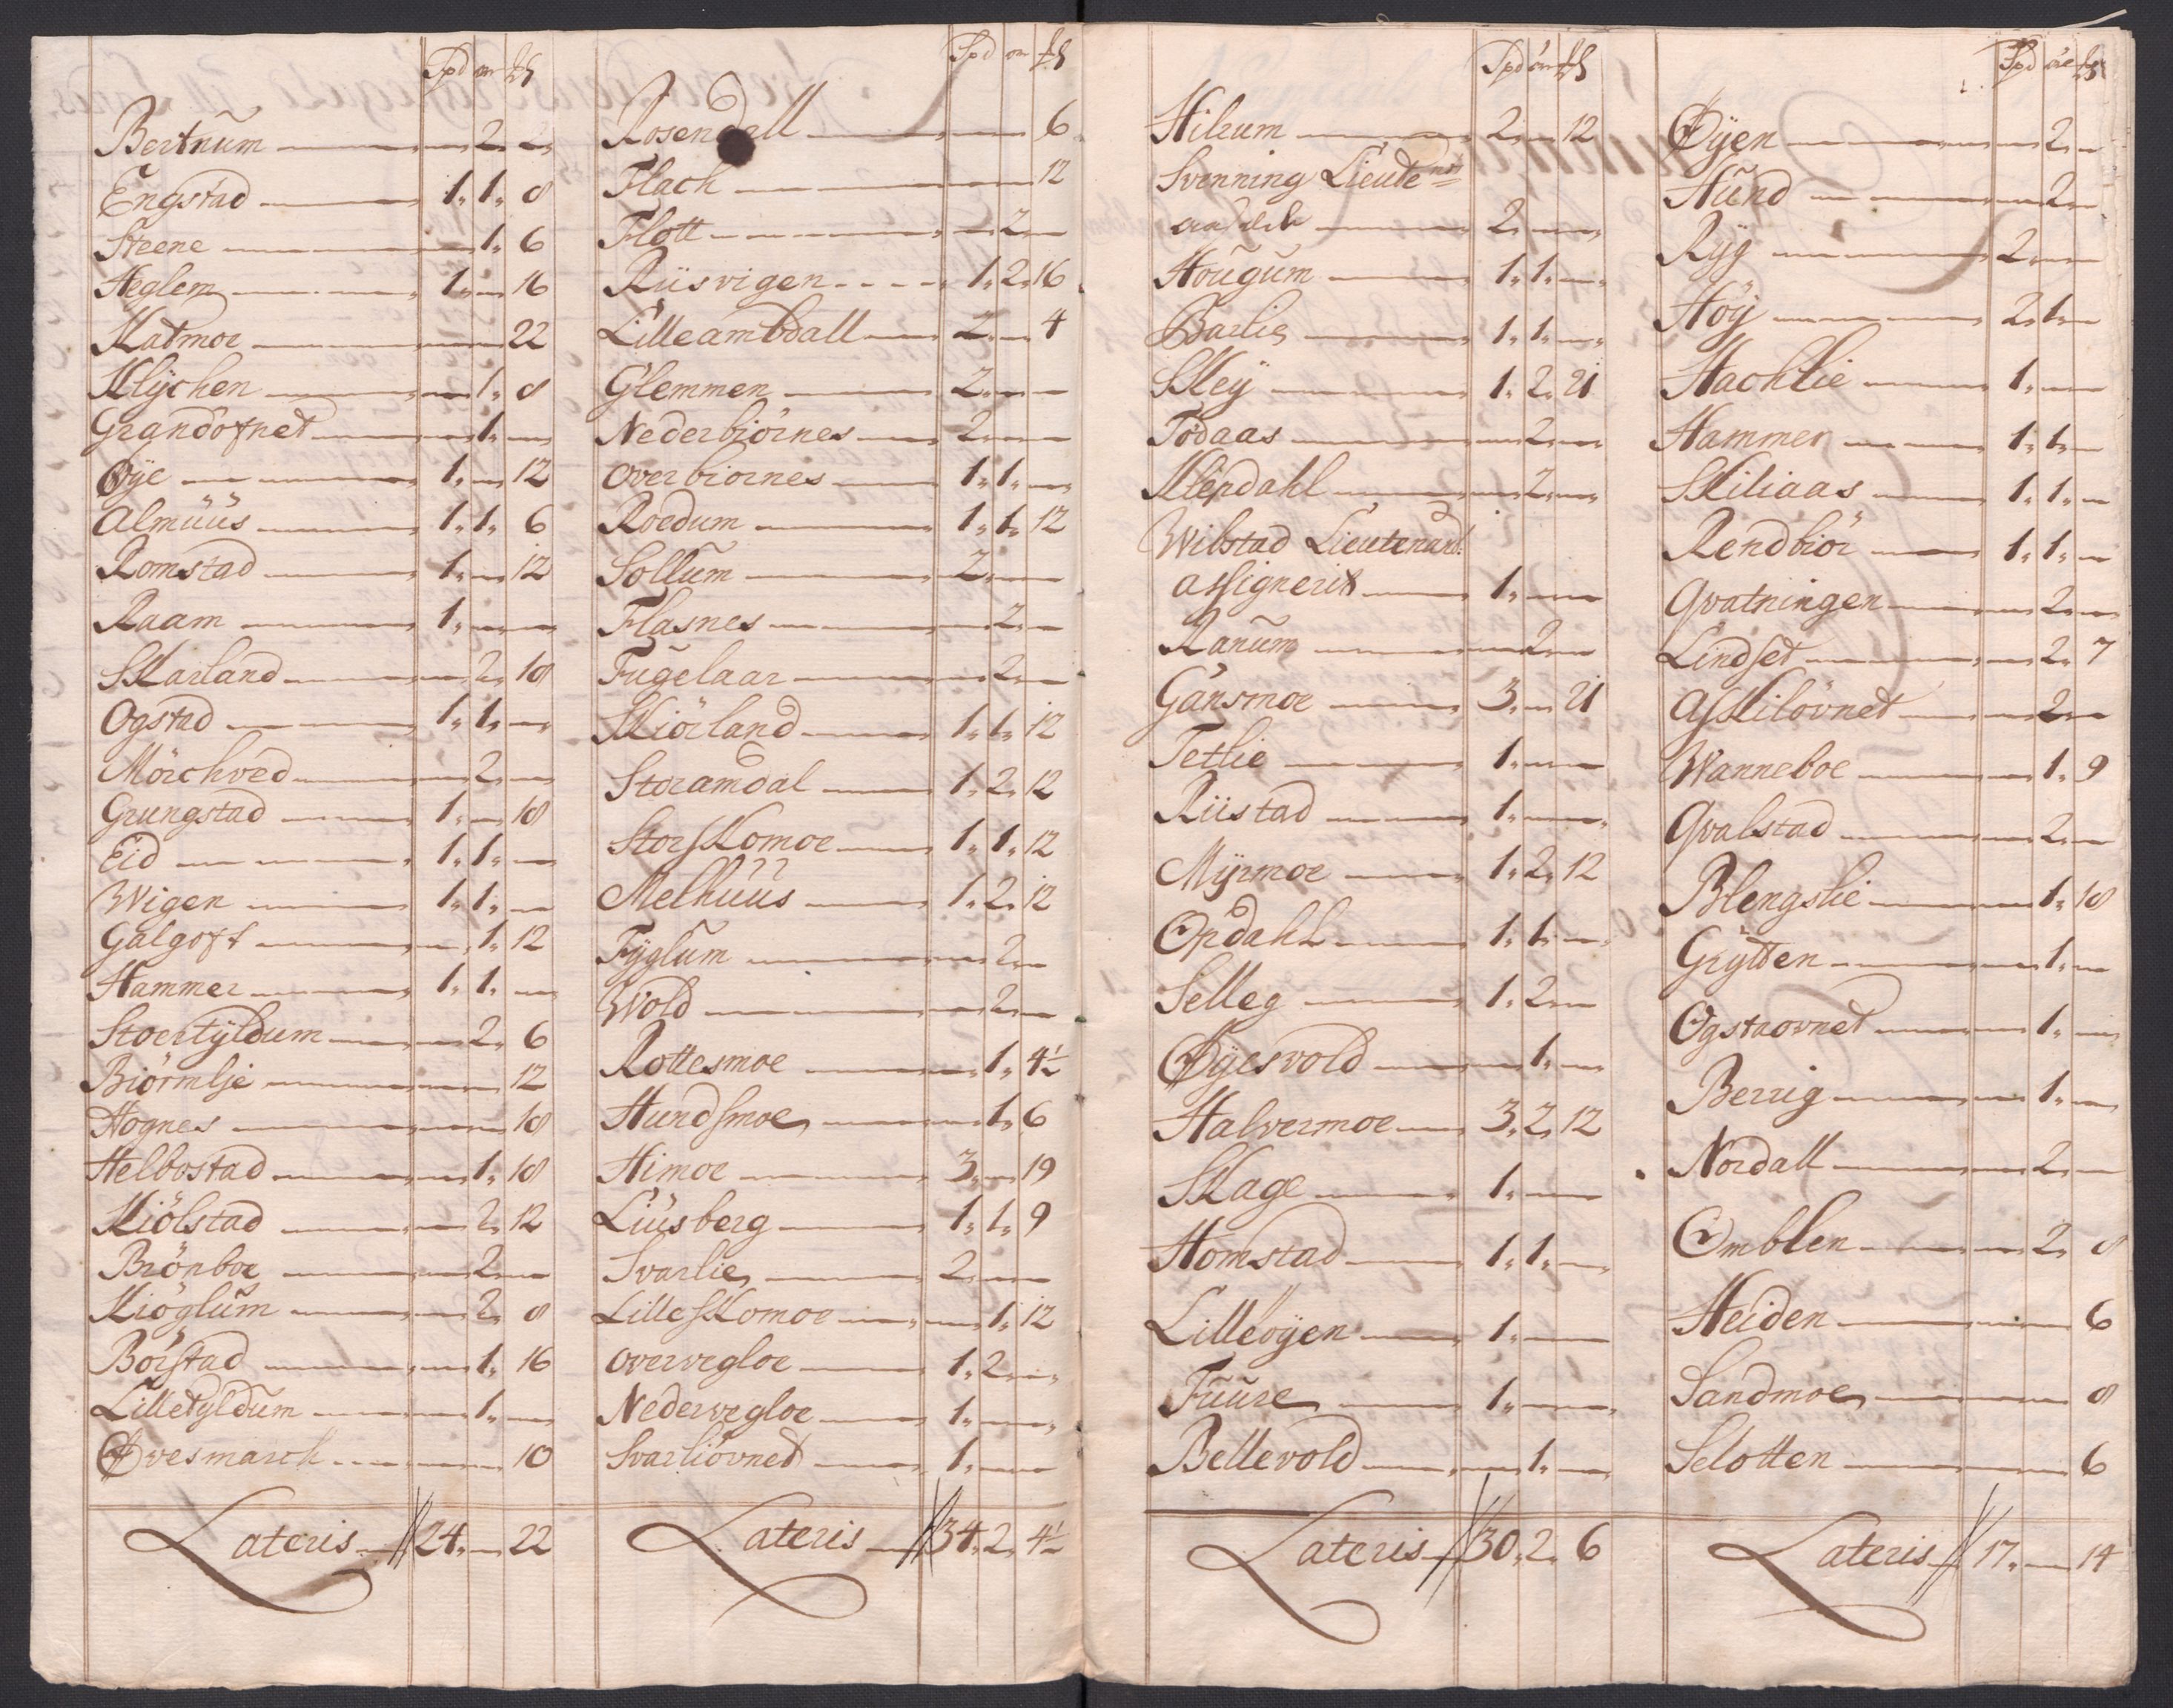 Spd ør ß
Bertnum 2 " "
Engstad 1 " 1 " 8
Steene 1 " 6
Heglem 1 " 16
Katmoe 22
Klÿchen 1 " 8
Grandøfnet 1 "
Øÿe 1 " 12
Almüüs 1 " 1 " 6
Romstad 1 " 12
Raam 1 "
Skarland 2 " 18
Ogstad 1 " 1 "
Mörchved 2 "
Grungstad 1 " 18
Eid 1 " 1 "
Wigen 1 " 1 "
Galgoft 1 " 12
Hammer 1 " 1 "
Stoertÿldum 2 " 6
Biörmlje 12
Hognes 18
Helbostad 1 " 18
Kiölstad 2 " 12
Brönboe 2 "
Kiöglum 2 " 8
Börstad 1 " 16
Lilletÿldum 1 "
Øvesmarch 10
Lateris 24 " 22
Spd ør ß
Rosendall 6
Flach 12
Flott 2 "
Riisvigen 1 " 2 " 16
Lilleambdall 2 " 4
Glemmen 2 "
Nederbiörnes 2 "
Overbiörnes 1 " 1 "
Roedum 1 " 1 " 12
Sollum 2 "
Flasnes 2 "
Fugelaar 2 "
Kiörland 1 " 1 " 12
Storamdal 1 " 2 " 12
StorSkomoe 1 " 1 " 12
Melhüüs 1 " 2 " 12
Fÿglum 2 "
Wold 2 "
Rottesmoe 1 " 4½
Hundsmoe 1 " 6
Himoe 3 " 19
Liüsberg 1 " 1 " 9
Svarlie 2 "
LilleSkomoe 1 " 12
Overvegloe 1 " 2 "
Nedervegloe 1 "
Svarliövned 1 "
Lateris 34 " 2 " 4½
Spd ør ß
Hilrum 2 " 12
Svenning Lieutent
2 "
Hougum 1 " 1 "
Barlie 1 " 1 "
Kleÿ 1 " 2 " 21
Tødaas 2 "
Klepdahl 2 "
Wibstad Lieutenant
assignerit 1 "
Ranum 2 "
Gansmoe 3 " 21
Tetlie 1 "
Riistad 1 "
Mÿrmoe 1 " 2 " 12
Opdahl 1 " 1 "
Selleg 1 " 2 "
Øÿesvold 1 "
Halvermoe 3 " 2 " 12
Skage 1 "
Homstad 1 " 1 "
Lilleöÿen 1 "
Fuure 1 "
Bellevold 1 "
Lateris 30 " 2 " 6
Spd öre ß
Øÿen 2 "
Hund 2 "
Rÿg 2 "
Höÿ 2 " 1 "
Hachlie 1 "
Hammer 1 " 1 "
Skiliaas 1 " 1 "
Rendbiör 1 " 1 "
Qvatningen 2 "
Lindset 2 " 7
Asskilövnet 2 "
Wanneboe 1 " 9
Qvalstad 2 "
Blengslie 1 " 18
Grÿtten 1 "
Ogstaovnet 1 "
Berrig 1 "
Nordall 2 "
Omblen 2 " 8
Heiden 6
Sandmoe 8
Selotten 6
Lateris 17 " 14